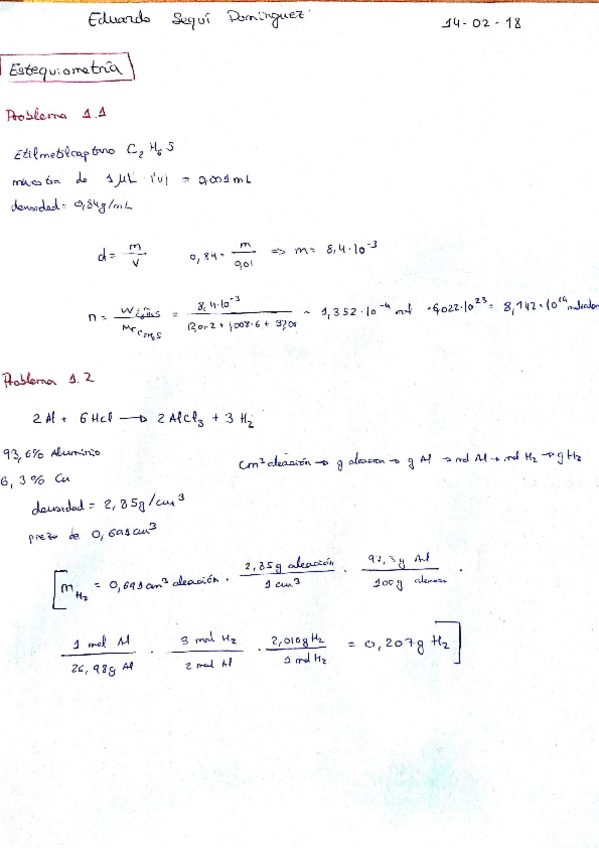 Eduardo Seguí Domínguez
14-02-18
Estequiometría
Problema 1.1
Etilmetilcaptano C₂H₆S
muestra de 1 μL (v) = 0,001 mL
densidad = 0,84 g/mL
d = m/V    0,84 = m/0,01 => m = 8,4·10⁻³
n = W C₂H₆S / Mr C₂H₆S = 8,4·10⁻³ / (12,01·2 + 1,008·6 + 32,01) = 1,352·10⁻⁴ mol · 6,022·10²³ = 8,142·10¹⁹ moléculas
Problema 1.2
2 Al + 6 HCl → 2 AlCl₃ + 3 H₂
93,6% Aluminio
cm³ aleación → g aleación → g Al → mol Al → mol H₂ → g H₂
6,3% Cu
densidad = 2,85 g/cm³
pieza de 0,691 cm³
[ m H₂ = 0,691 cm³ aleación · 2,85 g aleación / 1 cm³ · 93,7 g Al / 100 g aleación ·
1 mol Al / 26,98 g Al · 3 mol H₂ / 2 mol Al · 2,010 g H₂ / 1 mol H₂ = 0,207 g H₂ ]